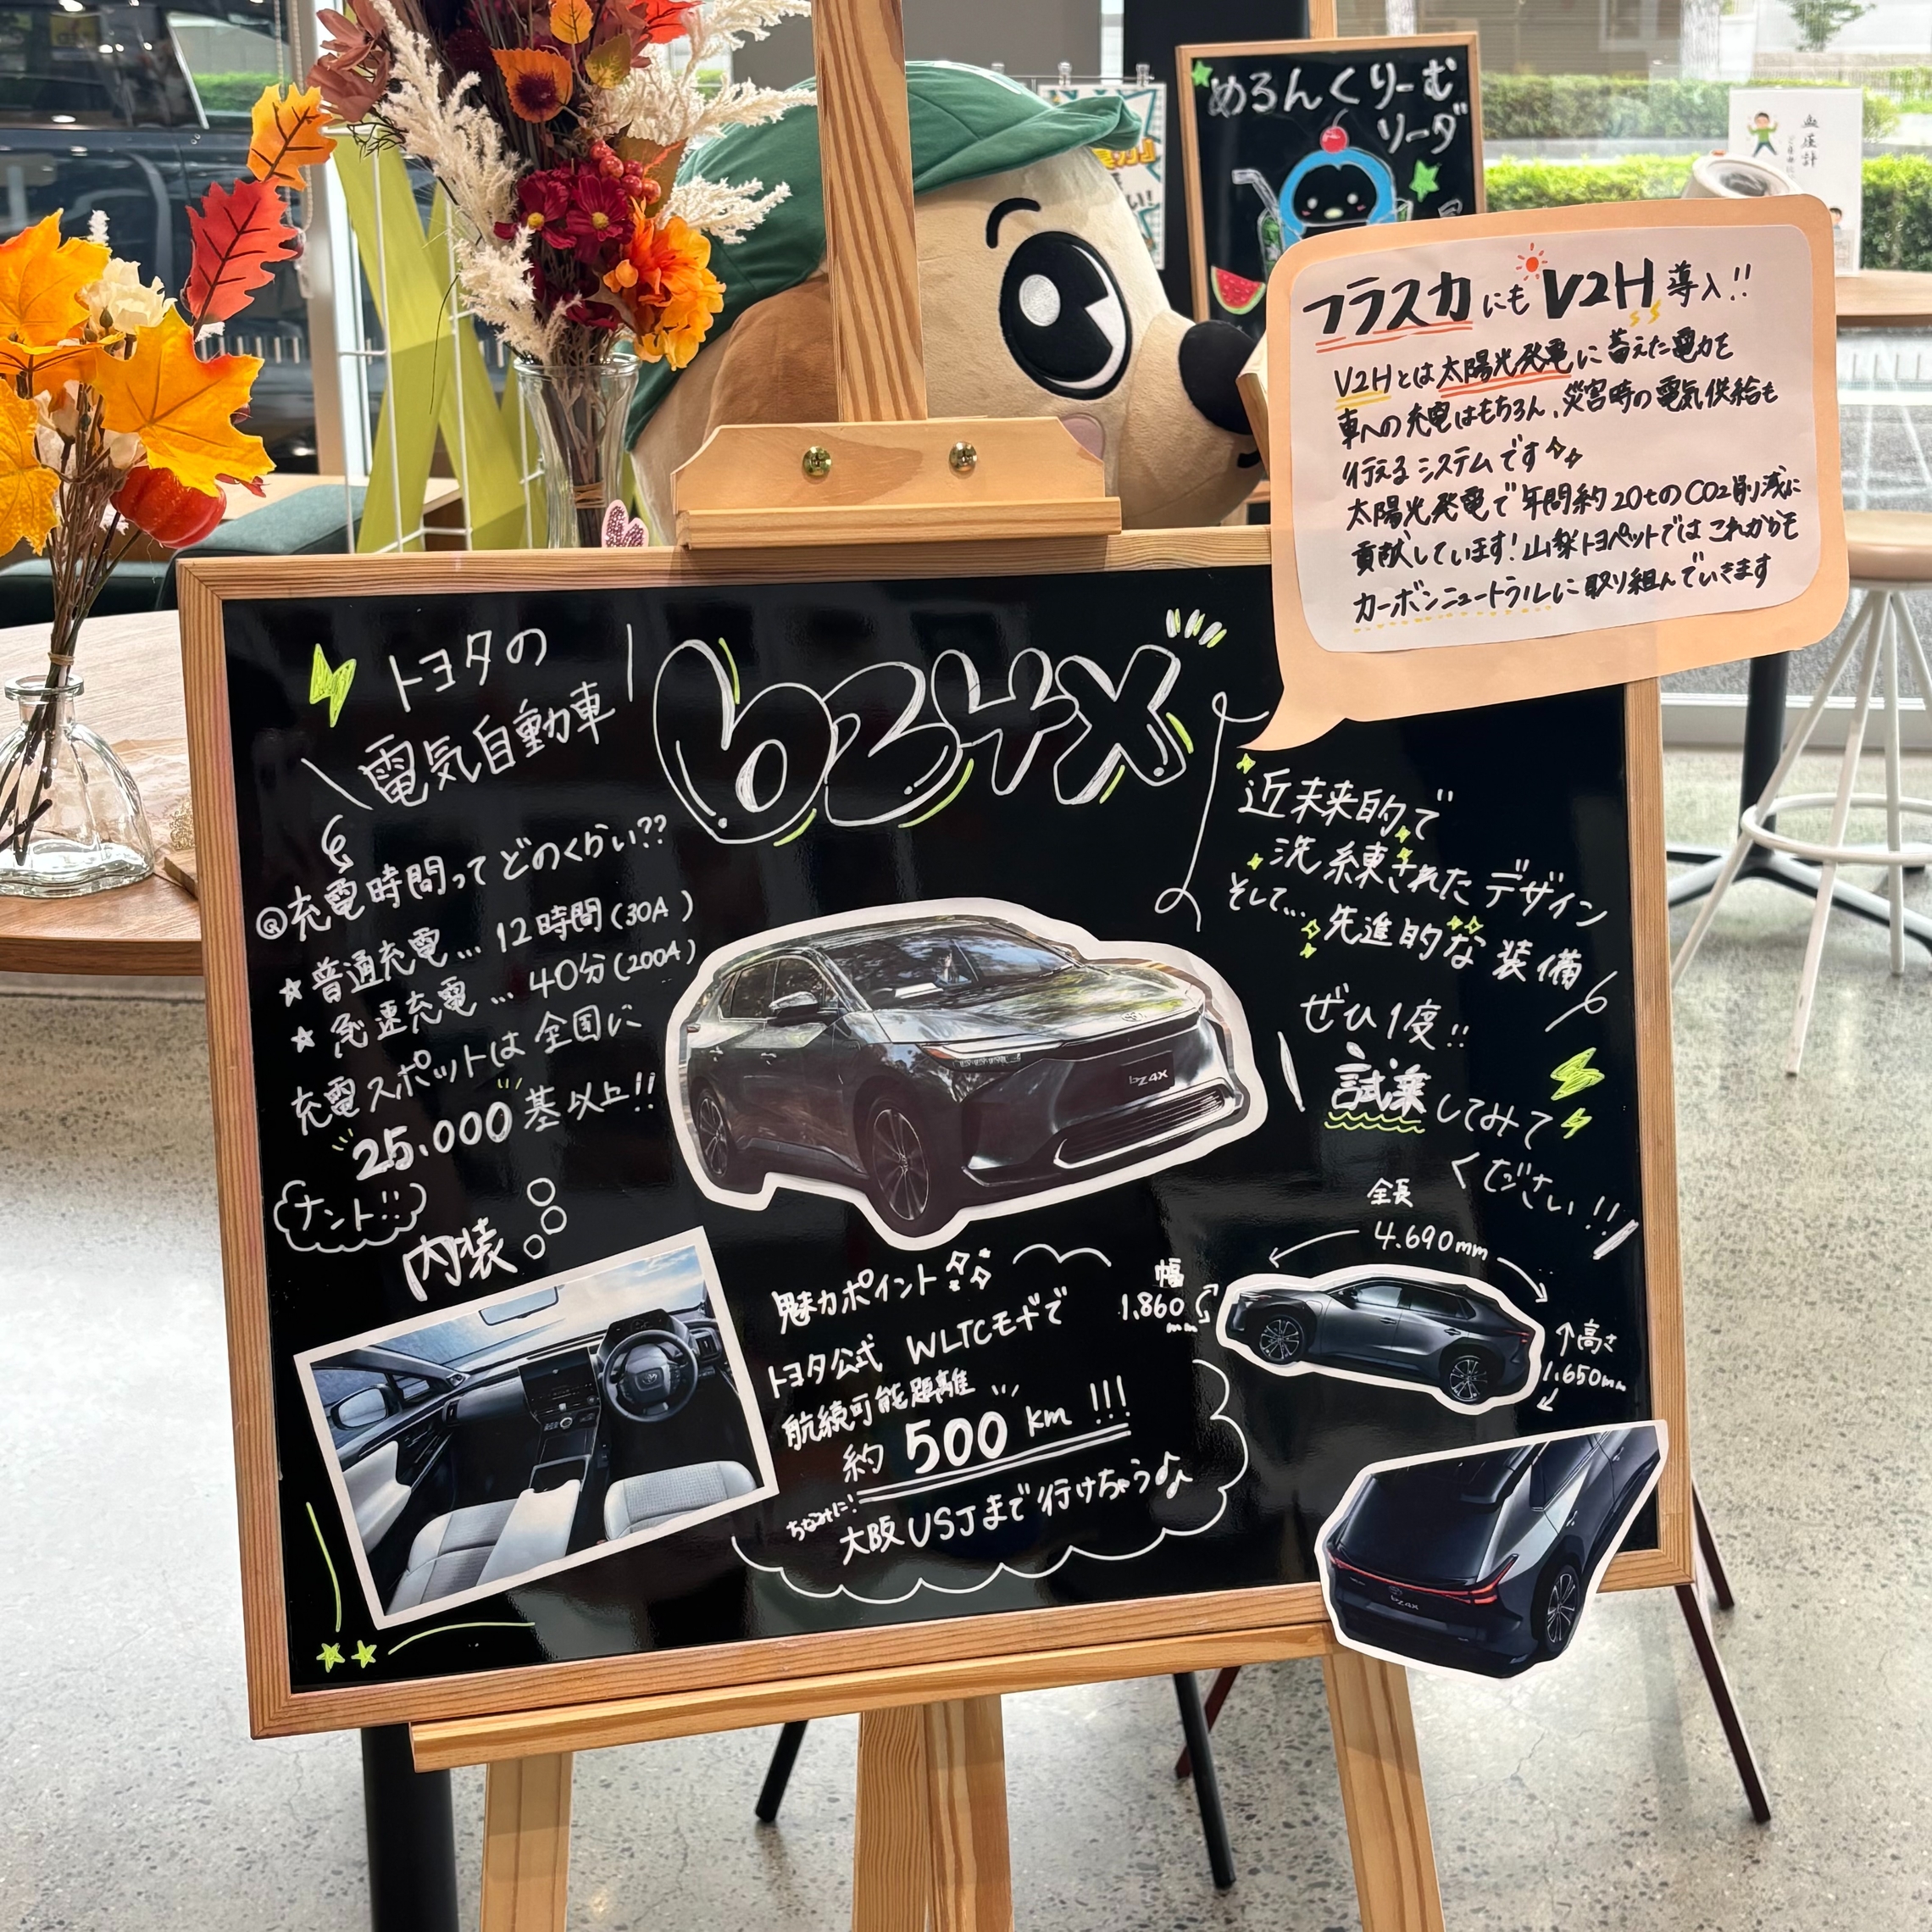 めろんくりーむ
ソーダ
血圧計
フラスカにもV2H導入!!
V2Hとは太陽光発電に蓄えた電力を
車への充電はもちろん、災害時の電気供給も
行えるシステムです
太陽光発電で年間約20tのCO2削減に
貢献しています!山梨トヨペットではこれからも
カーボンニュートラルに取り組んでいきます
トヨタの
電気自動車
bZ4X
Q充電時間ってどのくらい??
★普通充電…12時間(30A)
★急速充電…40分(200A)
充電スポットは全国に
25.000基以上!!
ナント!!
内装
近未来的で
洗練されたデザイン
そして…先進的な装備
ぜひ1度!!
試乗してみて
ください!!
bZ4X
魅力ポイント
トヨタ公式 WLTCモードで
航続可能距離
約500km!!!
ちなみに!
大阪USJまで行けちゃう♪
全長
4.690mm
幅
1.860
mm
↑高さ
1.650mm
bZ4X